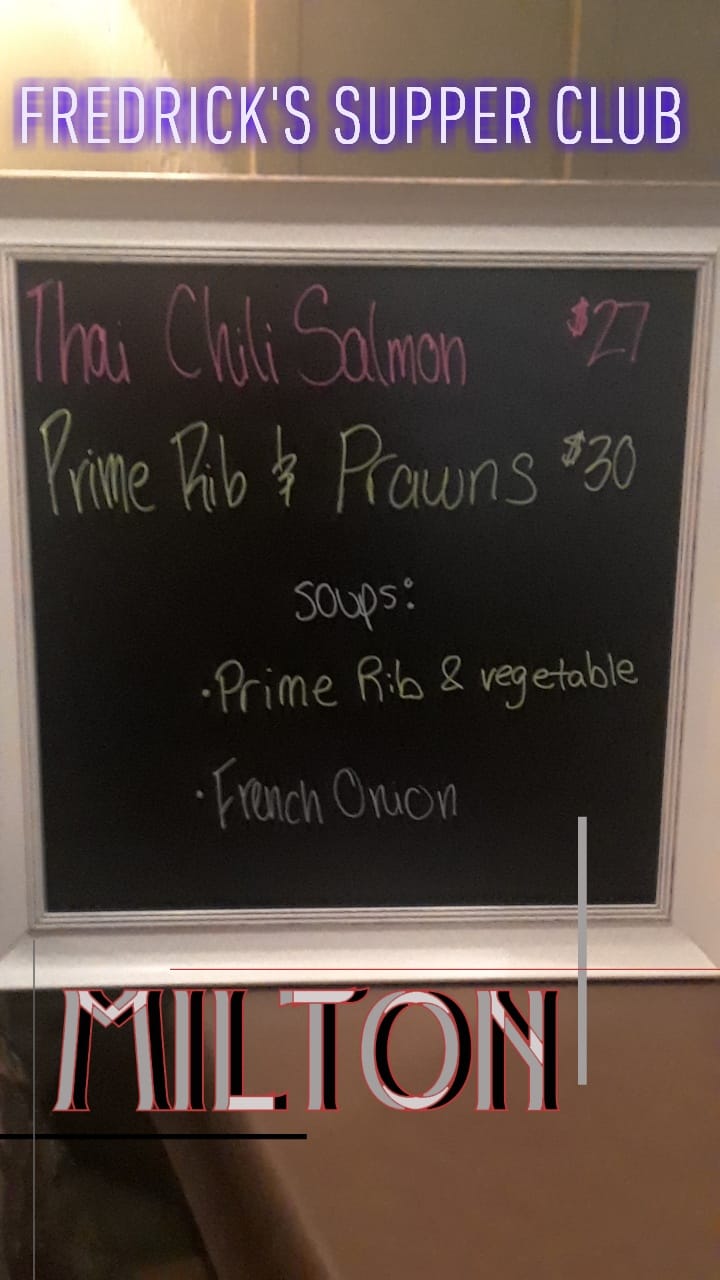 FREDRICK'S SUPPER CLUB
Thai Chili Salmon $27
Prime Rib & Prawns $30
soups:
·Prime Rib & vegetable
·French Onion
MILTON